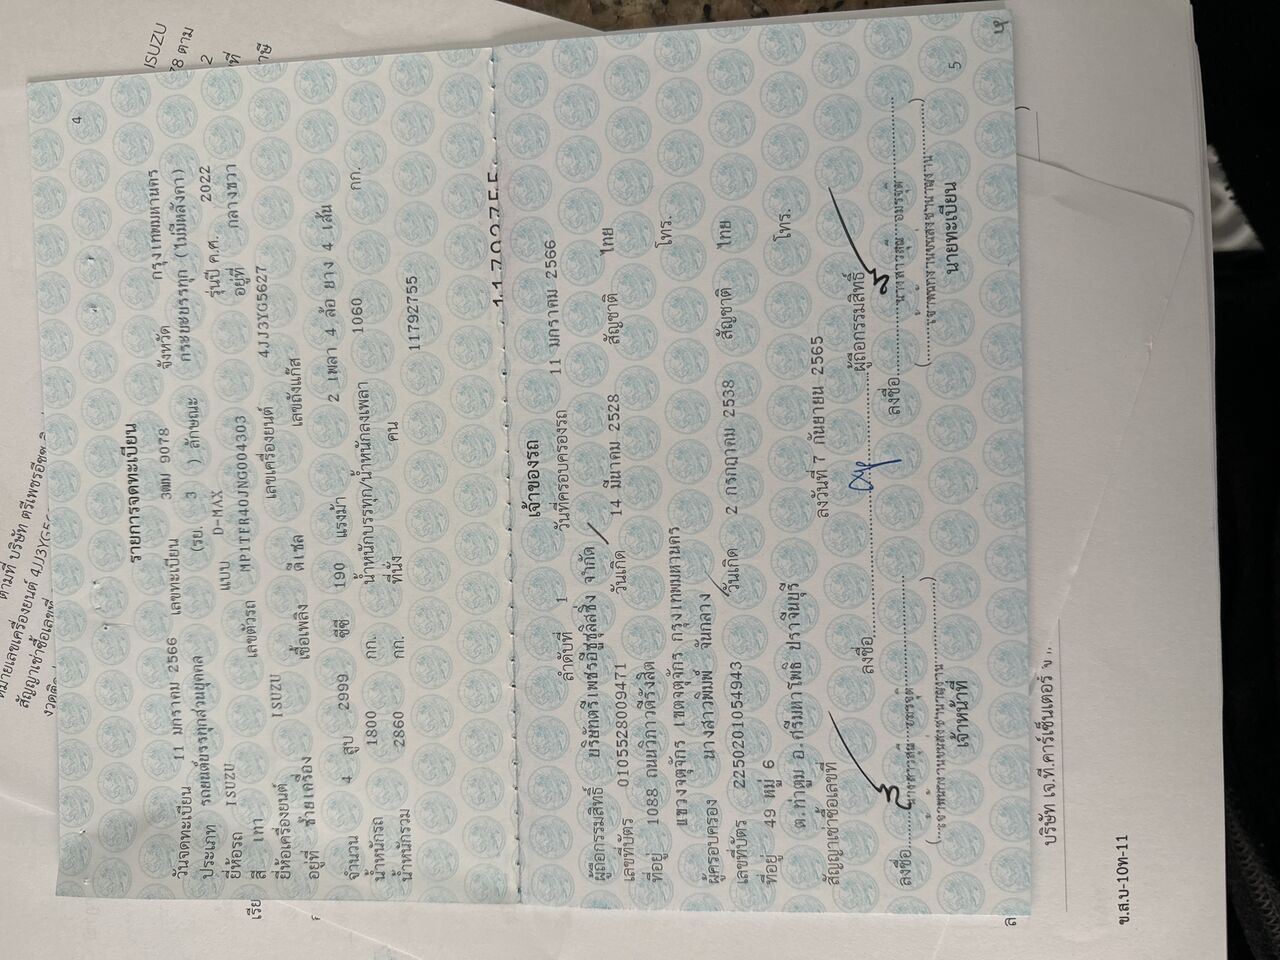 4
รายการจดทะเบียน
วันจดทะเบียน 11 มกราคม 2566 เลขทะเบียน 3ฒม 9078 จังหวัด กรุงเทพมหานคร
ประเภท รถยนต์บรรทุกส่วนบุคคล (รย. 3 ) ลักษณะ กระบะบรรทุก (ไม่มีหลังคา)
ยี่ห้อรถ ISUZU แบบ D-MAX รุ่นปี ค.ศ. 2022
สี เทา เลขตัวรถ MP1TFR40JNG004303 อยู่ที่ กลางขวา
ยี่ห้อเครื่องยนต์ ISUZU เลขเครื่องยนต์ 4JJ3YG5627
อยู่ที่ ซ้ายเครื่อง เชื้อเพลิง ดีเซล เลขถังแก๊ส
จำนวน 4 สูบ 2999 ซีซี 190 แรงม้า 2 เพลา 4 ล้อ ยาง 4 เส้น
น้ำหนักรถ 1800 กก. น้ำหนักบรรทุก/น้ำหนักลงเพลา 1060 กก.
น้ำหนักรวม 2860 กก. ที่นั่ง คน 11792755
11792755
เจ้าของรถ
ลำดับที่ 1 วันที่ครอบครองรถ 11 มกราคม 2566
ผู้ถือกรรมสิทธิ์ บริษัทตรีเพชรอีซูซุลิสซิ่ง จำกัด
เลขที่บัตร 0105528009471 วันเกิด 14 มีนาคม 2528 สัญชาติ ไทย
ที่อยู่ 1088 ถนนวิภาวดีรังสิต โทร.
แขวงจตุจักร เขตจตุจักร กรุงเทพมหานคร
ผู้ครอบครอง นางสาวพิมพ์ จันกลาง
เลขที่บัตร 2250201054943 วันเกิด 2 กรกฎาคม 2538 สัญชาติ ไทย
ที่อยู่ 49 หมู่ 6 โทร.
ต.ท่าตูม อ.ศรีมหาโพธิ ปราจีนบุรี
สัญญาเช่าซื้อเลขที่ ลงวันที่ 7 กันยายน 2565
ลงชื่อ ผู้ถือกรรมสิทธิ์
ลงชื่อ ลงชื่อ
เจ้าหน้าที่ นายทะเบียน
5
บริษัท เจ.ที.คาร์เซ็นเตอร์
ข.ส.บ-10ท-11
ISUZU
ตามที่ บริษัท ตรีเพชรอีซูซุ
หมายเลขเครื่องยนต์
สัญญาเช่าซื้อเลขที่